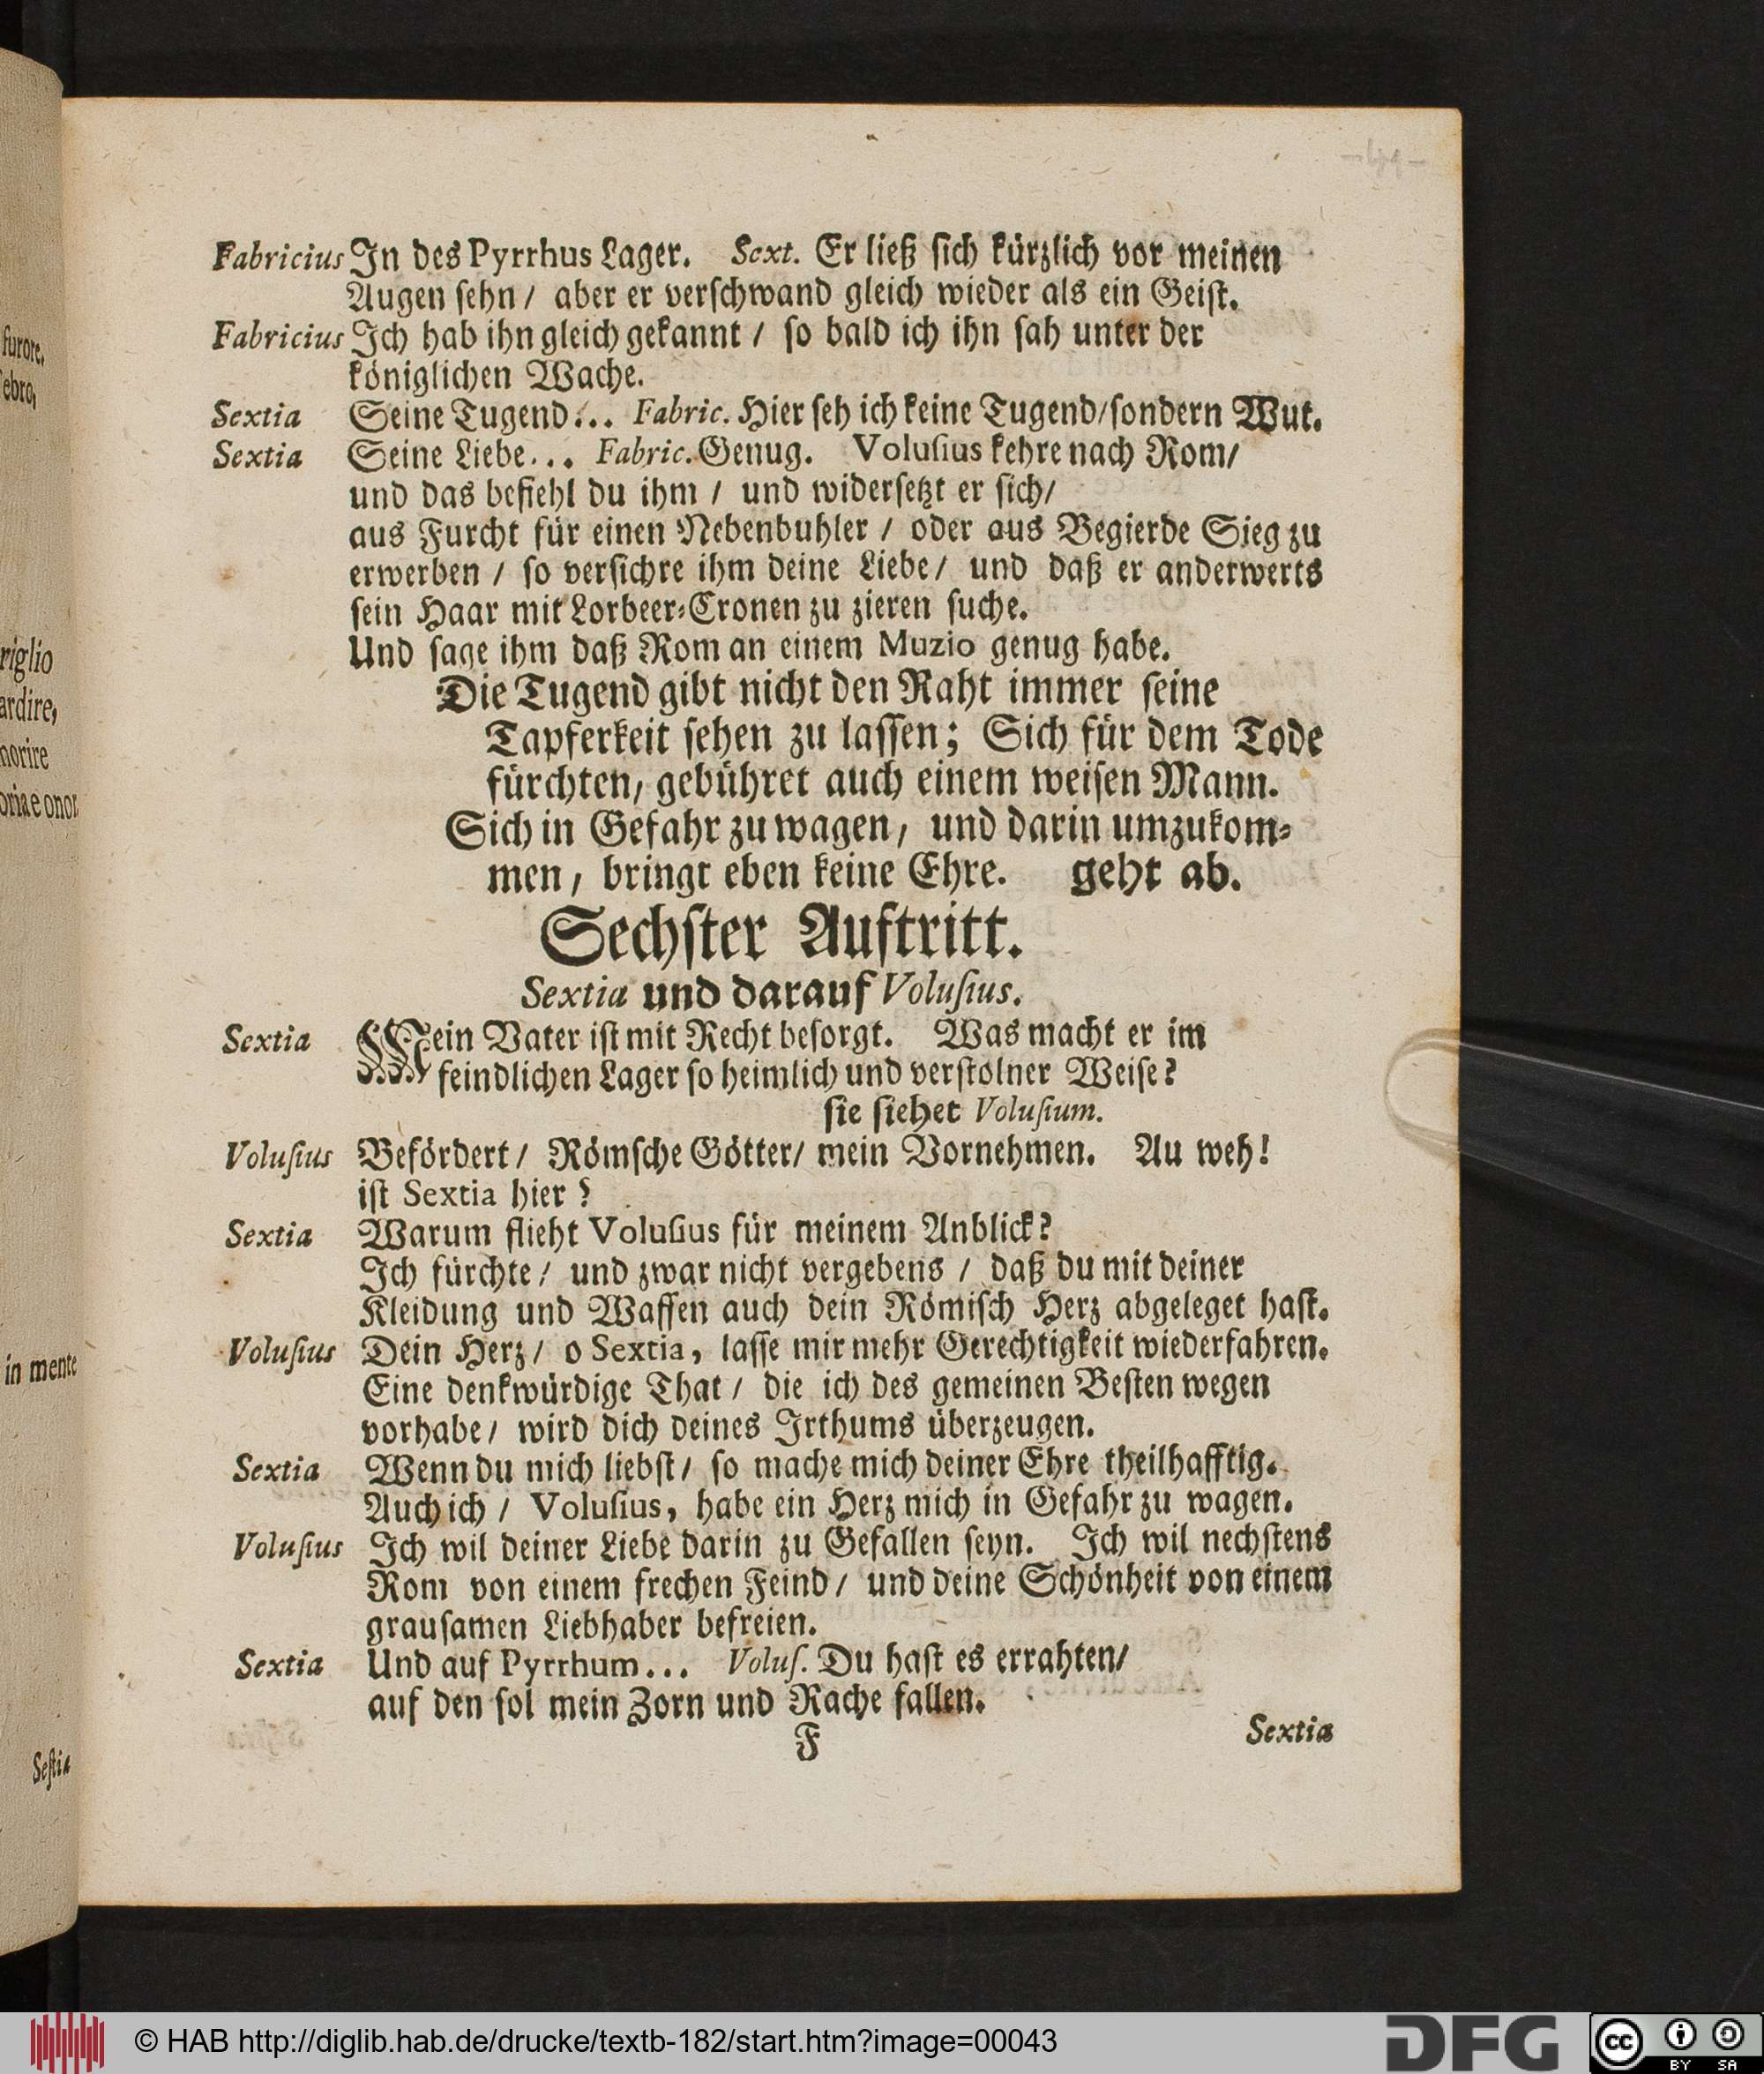 -41-
Fabricius In des Pyrrhus Lager. Sext. Er ließ sich kürzlich vor meinen
Augen sehn / aber er verschwand gleich wieder als ein Geist.
Fabricius Ich hab ihn gleich gekannt / so bald ich ihn sah unter der
königlichen Wache.
Sextia Seine Tugend... Fabric. Hier seh ich keine Tugend/sondern Wut.
Sextia Seine Liebe... Fabric. Genug. Volusius kehre nach Rom/
und das befiehl du ihm / und widersetzt er sich/
aus Furcht für einen Nebenbuhler / oder aus Begierde Sieg zu
erwerben / so versichre ihm deine Liebe/ und daß er anderwerts
sein Haar mit Lorbeer-Cronen zu zieren suche.
Und sage ihm daß Rom an einem Muzio genug habe.
Die Tugend gibt nicht den Raht immer seine
Tapferkeit sehen zu lassen; Sich für dem Tode
fürchten, gebühret auch einem weisen Mann.
Sich in Gefahr zu wagen, und darin umzukom-
men, bringt eben keine Ehre. geht ab.
Sechster Auftritt.
Sextia und darauf Volusius.
Sextia Mein Vater ist mit Recht besorgt. Was macht er im
feindlichen Lager so heimlich und verstolner Weise?
sie siehet Volusium.
Volusius Befördert / Römsche Götter/ mein Vornehmen. Au weh!
ist Sextia hier?
Sextia Warum flieht Volusius für meinem Anblick?
Ich fürchte / und zwar nicht vergebens / daß du mit deiner
Kleidung und Waffen auch dein Römisch Herz abgeleget hast.
Volusius Dein Herz / o Sextia, lasse mir mehr Gerechtigkeit wiederfahren.
Eine denkwürdige That / die ich des gemeinen Besten wegen
vorhabe / wird dich deines Irthums überzeugen.
Sextia Wenn du mich liebst / so mache mich deiner Ehre theilhafftig.
Auch ich / Volusius, habe ein Herz mich in Gefahr zu wagen.
Volusius Ich wil deiner Liebe darin zu Gefallen seyn. Ich wil nechstens
Rom von einem frechen Feind / und deine Schönheit von einem
grausamen Liebhaber befreien.
Sextia Und auf Pyrrhum... Volus. Du hast es errahten/
auf den sol mein Zorn und Rache fallen.
F
Sextia
furore,
riglio
ardire,
in mente
Sestia
© HAB http://diglib.hab.de/drucke/textb-182/start.htm?image=00043
DFG
cc BY SA